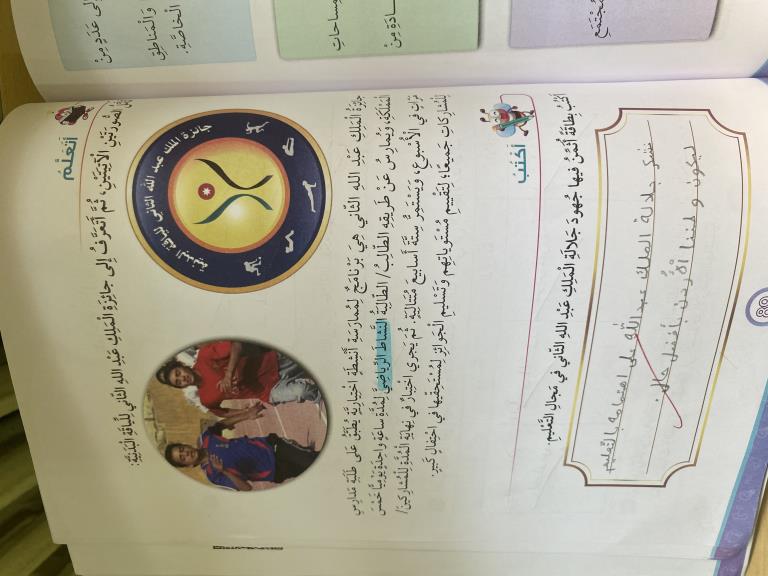 إلى عَدَدٍ مِنْ
وَالْمَناطِقِ
الْخاصَّةِ.
ساحاتِ
سادَةَ مِنْ
مُجْتَمَعِ
أَتَعَلَّمُ
الصّورَتَيْنِ الْآتِيَتَيْنِ، ثُمَّ أَتَعَرَّفُ إِلى جائِزَةِ الْمَلِكِ عَبْدِ اللهِ الثّاني لِلِّياقَةِ الْبَدَنِيَّةِ:
جائزة الملك عبد الله الثاني للياقة البدنية
جائِزَةُ الْمَلِكِ عَبْدِ اللهِ الثّاني هِيَ بَرْنامَجٌ لِمُمارَسَةِ أَنْشِطَةٍ اخْتِيارِيَّةٍ يُطَبَّقُ عَلى طَلَبَةِ مَدارِسِ
الْمَمْلَكَةِ، وَيُمارِسُ عَنْ طَريقِهِ الطّالِبُ/ الطّالِبَةُ النَّشاطَ الرِّياضِيَّ لِمُدَّةِ ساعَةٍ واحِدَةٍ يَوْمِيًّا خَمْسَ
مَرّاتٍ في الْأُسْبوعِ، وَيَسْتَمِرُّ سِتَّةَ أَسابيعَ مُتَتالِيَةٍ. ثُمَّ يَجْري اخْتِبارٌ في نِهايَةِ الْمُدَّةِ لِلْمُشارِكينَ/
لِلْمُشارِكاتِ جَميعًا؛ لِتَقْييمِ مُسْتَوَياتِهِمْ وَتَسْليمِ الْجَوائِزِ لِمُسْتَحِقّيها في احْتِفالٍ كَبيرٍ.
أَكْتُبُ
أَكْتُبُ بِطاقَةً أُثَمِّنُ فيها جُهودَ جَلالَةِ الْمَلِكِ عَبْدِ اللهِ الثّاني في مَجالِ التَّعْليمِ.
نشكر جلالة الملك عبد الله على اهتمامه بالتعليم
ليكون وطننا الأردن بأفضل حال
89